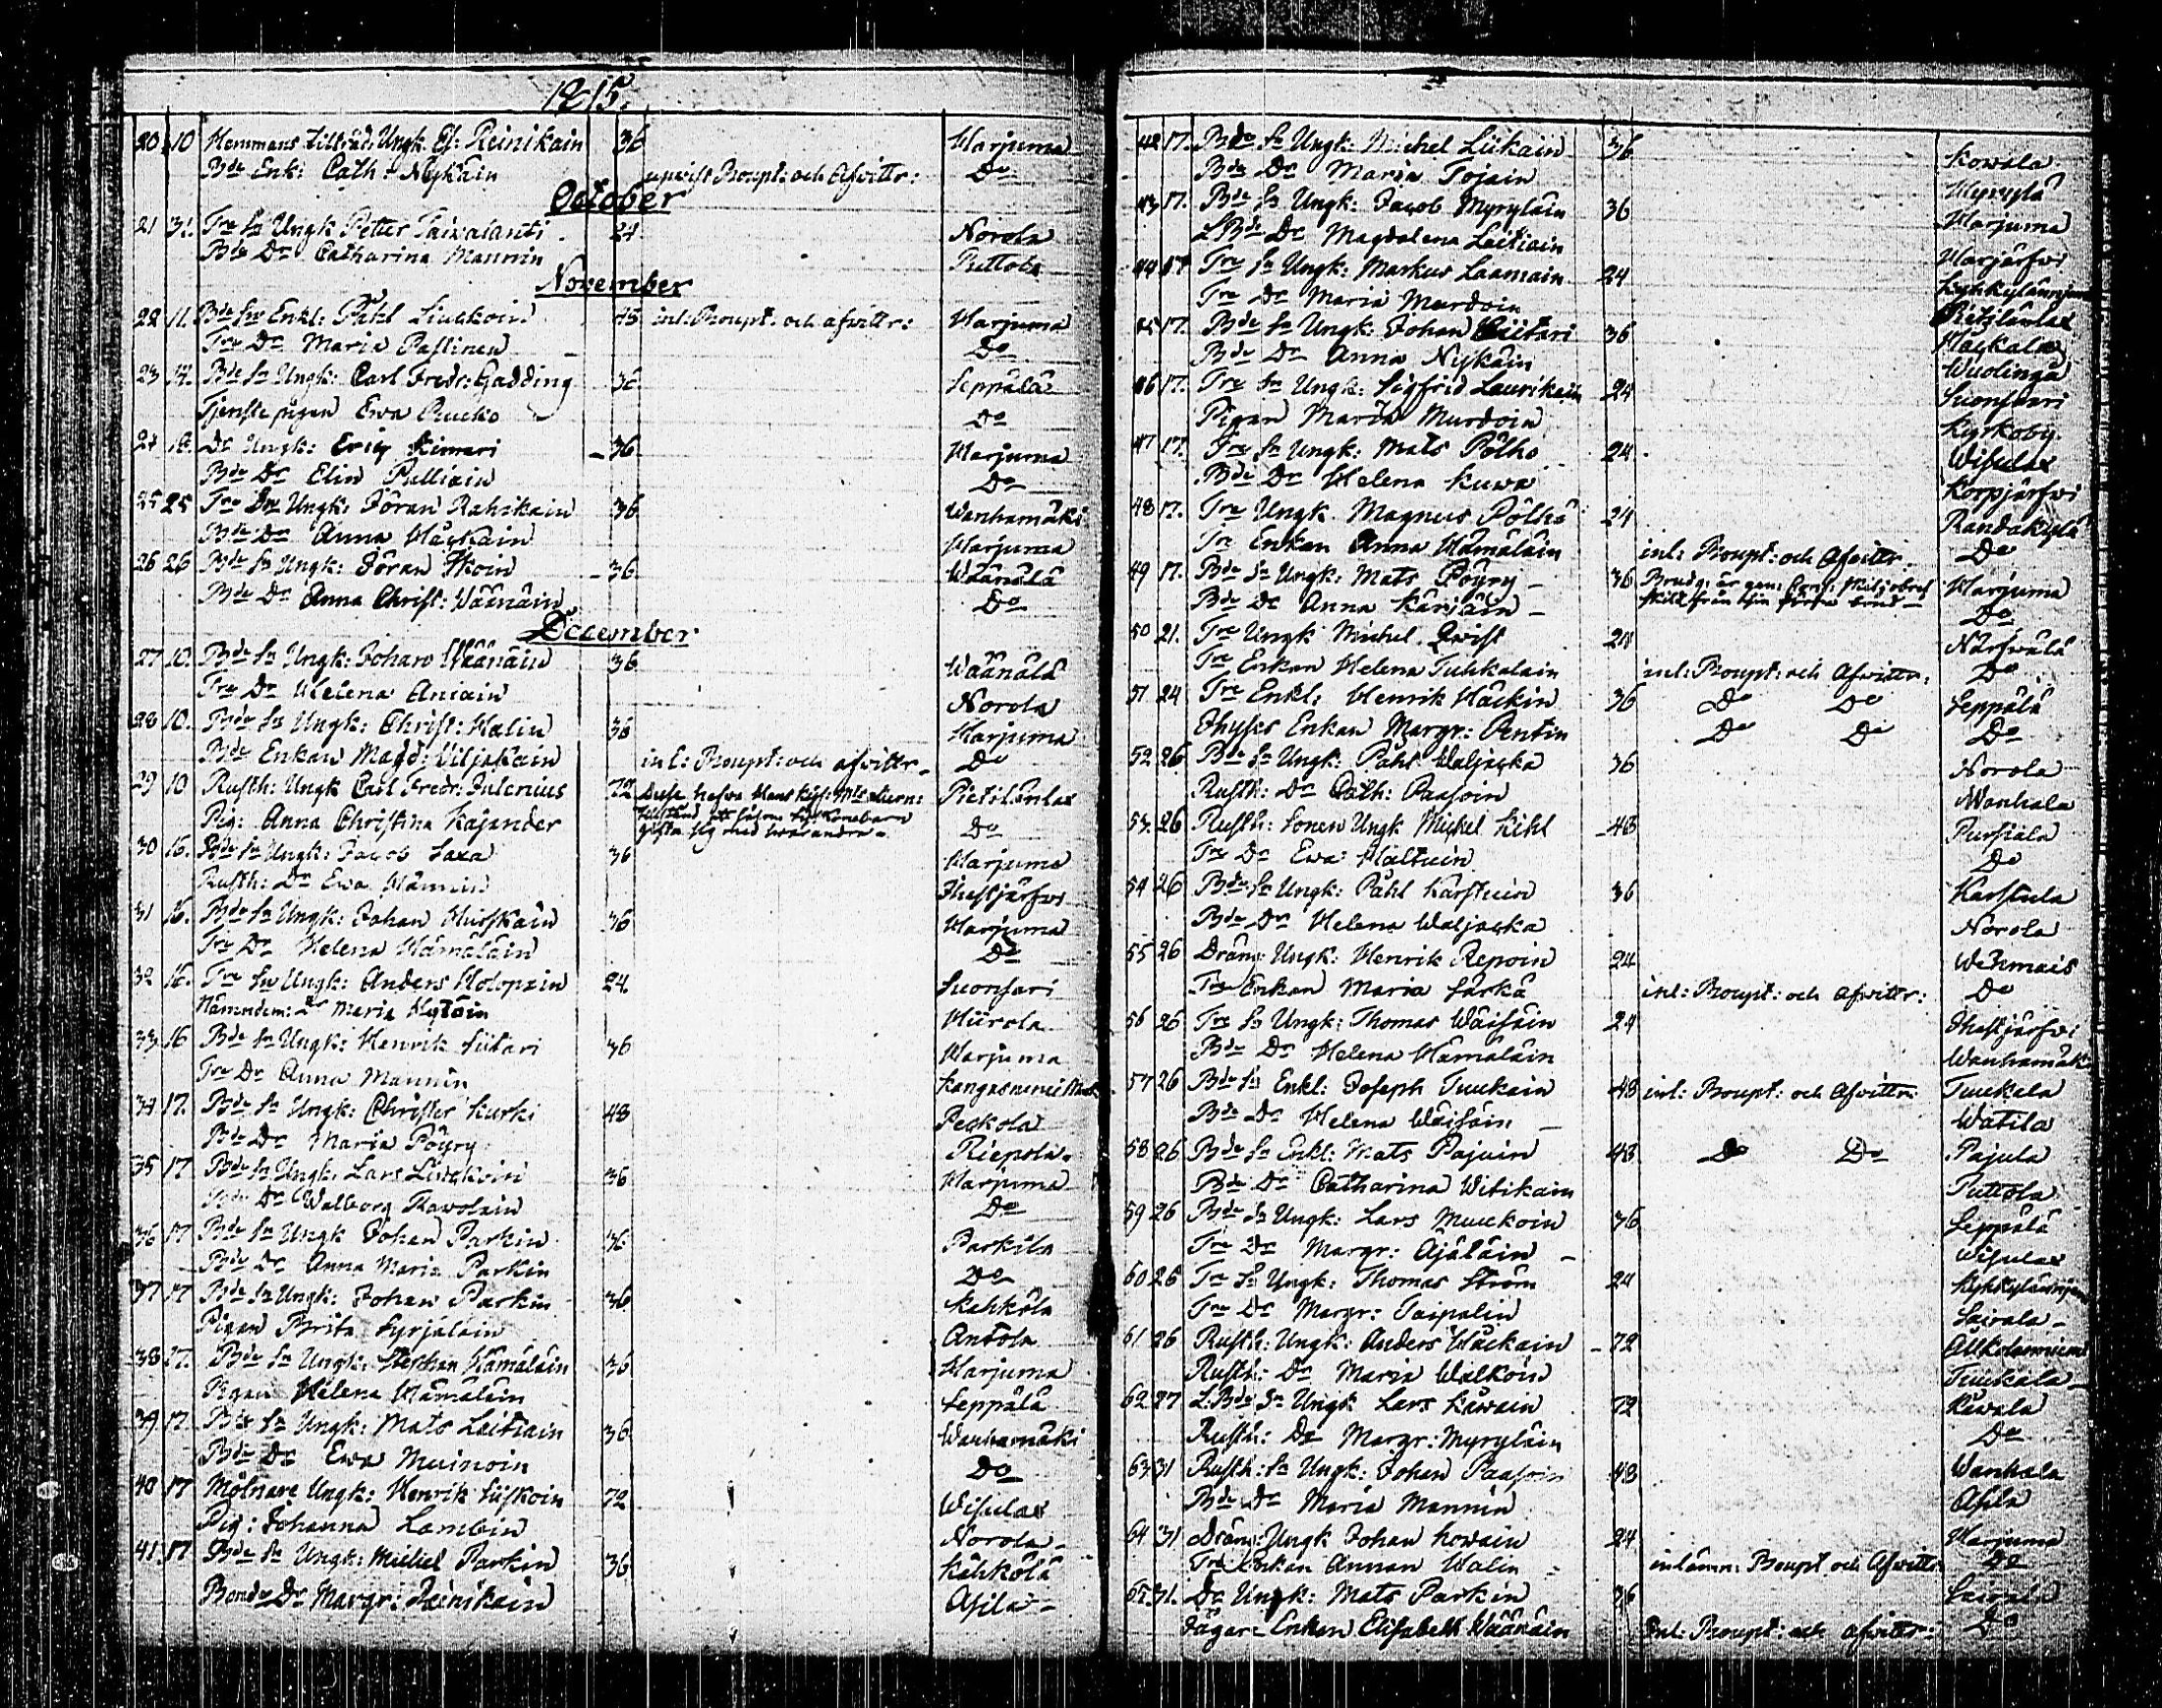 1815.
20 10 Hemmans tillträd. Ungk. Ef: Reinikain 36 Harjuma
Bde Enk: Cath: Nykäin upvist Boupt: och Afvittr: Do
October
21 31. Tre Sn Ungk Petter Taivalanti 24 Norola
Bde Dr Catharina Mannin Puttola
November
22 11. Bde Sn Enkl: Påhl Liuckoin 48 inl: Boupt: och afvittr: Harjuma
Tre Dr Maria Passinen Do
23 Bde Sn Ungk: Carl Fredr: Gadding 36 Seppälä
Tjenste pigan Ewa Rucko Do
24 Dr Ungk: Eric Kinnari 36 Harjuma
Bde Dr Elin Pulliain Do
25 25 Tre Dr Ungk: Jöran Rahikain 36 Wanhamäki
Bde Dr Anna Häckäin Harjuma
26 26 Bde Sn Ungk: Jöran Ikoin 36 Wäänälä
Bde Dr Anna Christ: Wäänäin Do
December
27 10. Bde Sn Ungk: Johan Wäänäin 36 Wäänälä
Tre Dr Helena Aniain Norola
28 10. Bde Sn Ungk: Christ: Halin 36 Harjuma
Bde Enkan Magd: Viljakain inl: Boupt: och afvittr Do
29 10 Rusth: Ungk Carl Fredr: Julenius 72 Dessa hafva Hans Kejs: Mts tillstånd att såsom Syskonebarn gifta sig med hvarandra Pietilänlax
Pig: Anna Christina Kajander Do
30 16. Bde Sn Ungk: Jacob Saxa 36 Harjuma
Rusth: Dr Ewa Hännin Ihastjärfvi
31 16. Bde Sn Ungk: Johan Hurskain 36 Harjuma
Tre Dr Helena Hämäläin Do
32 16. Tre Sn Ungk: Anders Holopain 24. Suonsari
Nämndem: Dr Maria Kytöin Hiirola
33 16 Bde Sn Ungk: Henrik Siitari 36 Harjuma
Tre Dr Anna Mannin Kangasniemi
34 17. Bde Sn Ungk: Christer Kurki 48 Peckola
Bde Dr Maria Pöyry Riepola
35 17 Bde Sn Ungk: Lars Liuckoin 36 Harjuma
Bde Dr Walborg Pawolain Do
36 17 Bde Sn Ungk Johan Parkin 36 Parkila
Bde Dr Anna Maria Parkin Do
37 17 Bde Sn Ungk: Johan Parkin 36 Kähkölä
Pigan Brita Syrjäläin Antola
38 17. Bde Sn Ungk: Stephan Hämäläin 36 Harjuma
Pigan Helena Hämäläin Seppälä
39 17. Bde Sn Ungk: Mats Laitiain 36 Wanhamäki
Bde Dr Ewa Muinoin Do
40 17 Mölnare Ungk: Henrik Siiskoin 72 Wisulax
Pig: Johanna Lambin Norola
41 17 Bde Sn Ungk: Michel Parkin 36 Kähkölä
Bonde Dr Margr: Reinikain Asila
42 17. Bde Sn Ungk: Michel Liikain 36 Kowala
Bde Dr Maria Tojain Myrylä
43 17. Bde Sn Ungk: Jacob Myryläin 36 Harjuma
LBde Dr Magdalena Laitiain Harjärfvi
44 17 Tre Sn Ungk: Markus Laamain 24
Tre Dr Maria Murdoin Pietilänlax
45 17. Bde Sn Ungk: Johan Siitari 36 Hackala
Bde Dr Anna Nykäin Wuolinga
46 17. Tre Sn Ungk: Sigfrid Laurikain 24 Suonsari
Pigan Maria Murdoin Kyrkoby
47 17. Tre Sn Ungk: Mats Pölhö 24 Wisulax
Bde Dr Helena Kuwa Korpjärfvi
48 17. Tre Ungk. Magnus Pölhö 24 Randakylä
Tre Enkan Anna Hämäläin inl: Boupt: och Afvittr. Do
49 17. Bde Sn Ungk: Mats Pöyry 36 Harjuma
Bde Dr Anna Kärjäin Do
50 21. Tre Ungk Michel Qvist 24 Närfwälä
Tre Enkan Helena Tuhkalain inl: Boupt: och Afvittr: Do
51 24 Tre Enkl: Henrik Häckin 36 Do Do Seppälä
Ihyses Enkan Margr: Pentin Do Do Do
52 26 Bde Sn Ungk: Påhl Waljacka 36 Norola
Rusth: Dr Cath: Paasoin Wanhala
53 26 Rusth: Sonen Ungk Michel Kihl 48 Pursiala
Tre Dr Ewa Haltuin Do
54 26 Bde Sn Ungk: Påhl Karstuin 36 Karstula
Bde Dr Helena Waljacka Norola
55 26 Dräng: Ungk: Henrik Repoin 24 Wehmais
Tre Enkan Maria Särkä inl: Boupt: och Afvittr: Do
56 26 Tre Sn Ungk: Thomas Wäisäin 24 Ihastjärfvi
Bde Dr Helena Hämäläin Wanhamäki
57 26 Bde Sn Enkl: Joseph Tuukain 48 inl: Boupt: och Afvittr: Tuukala
Bde Dr Helena Wäisäin Watila
58 26 Bde Sn Enkl: Mats Pajuin 48 Do Do Pajula
Bde Dr Catharina Witikain Puttola
59 26 Bde Sn Ungk: Lars Muckoin 36 Seppälä
Tre Dr Margr: Ajäläin Wisulax
60 26 Tre Sn Ungk: Thomas Ström 24
Tre Dr Margr: Taipalin Sairala
61 26 Rusth: Ungk: Anders Häckain 72
Rusth: Dr Maria Walkoin Tuukala
62 27 L:Bde Sn Ungk Lars Käwain 72 Käwala
Rusth: Dr Margr: Myryläin Do
63 31 Rusth: Sn Ungk: Johan Paasoin 48 Wanhala
Bde Dr Maria Mannin Asila
64 31 Dräng: Ungk Johan Howain 24 Harjuma
Tre Enkan Annan Walin inlämn: Boupt och Afvittr Do
65 31. Dr Ungk: Mats Parkin 36 Sairala
Jägar Enkan Elisabeth Wäänäin Inl: Boupt: och afvittr: Do